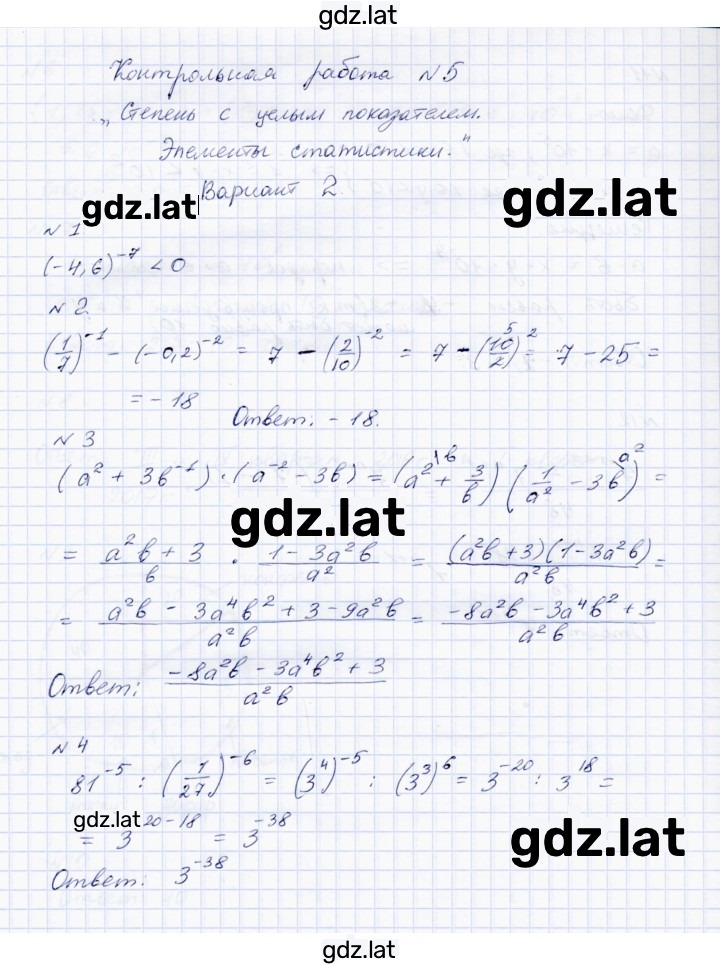 gdz.lat
Контрольная работа №5
„Степень с целым показателем.
Элементы статистики."
gdz.lat Вариант 2. gdz.lat
№1
(-4,6)⁻⁷ < 0
№2
(1/7)⁻¹ - (-0,2)⁻² = 7 - (2/10)⁻² = 7 - (10/2)² ⁵ = 7 - 25 =
= -18 Ответ: -18.
№3
(a² + 3b⁻¹) · (a⁻² - 3b) = (a² \b + 3/b) (1/a² - 3b \a²) =
gdz.lat
= (a²b + 3)/b · (1 - 3a²b)/a² = ((a²b + 3)(1 - 3a²b))/(a²b) =
= (a²b - 3a⁴b² + 3 - 9a²b)/(a²b) = (-8a²b - 3a⁴b² + 3)/(a²b)
Ответ: (-8a²b - 3a⁴b² + 3)/(a²b)
№4
81⁻⁵ : (1/27)⁻⁶ = (3⁴)⁻⁵ : (3³)⁶ = 3⁻²⁰ : 3¹⁸ =
gdz.lat gdz.lat
= 3²⁰⁻¹⁸ = 3⁻³⁸
Ответ: 3⁻³⁸
gdz.lat